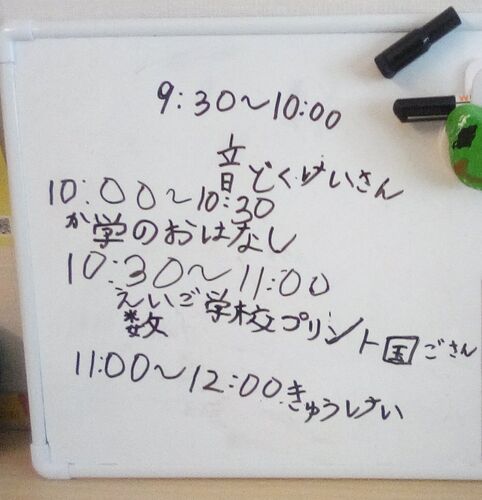 9:30〜10:00
音どくけいさん
10:00〜10:30
か学のおはなし
10:30〜11:00
えいご学校プリント国ごさん
数
11:00〜12:00きゅうけい